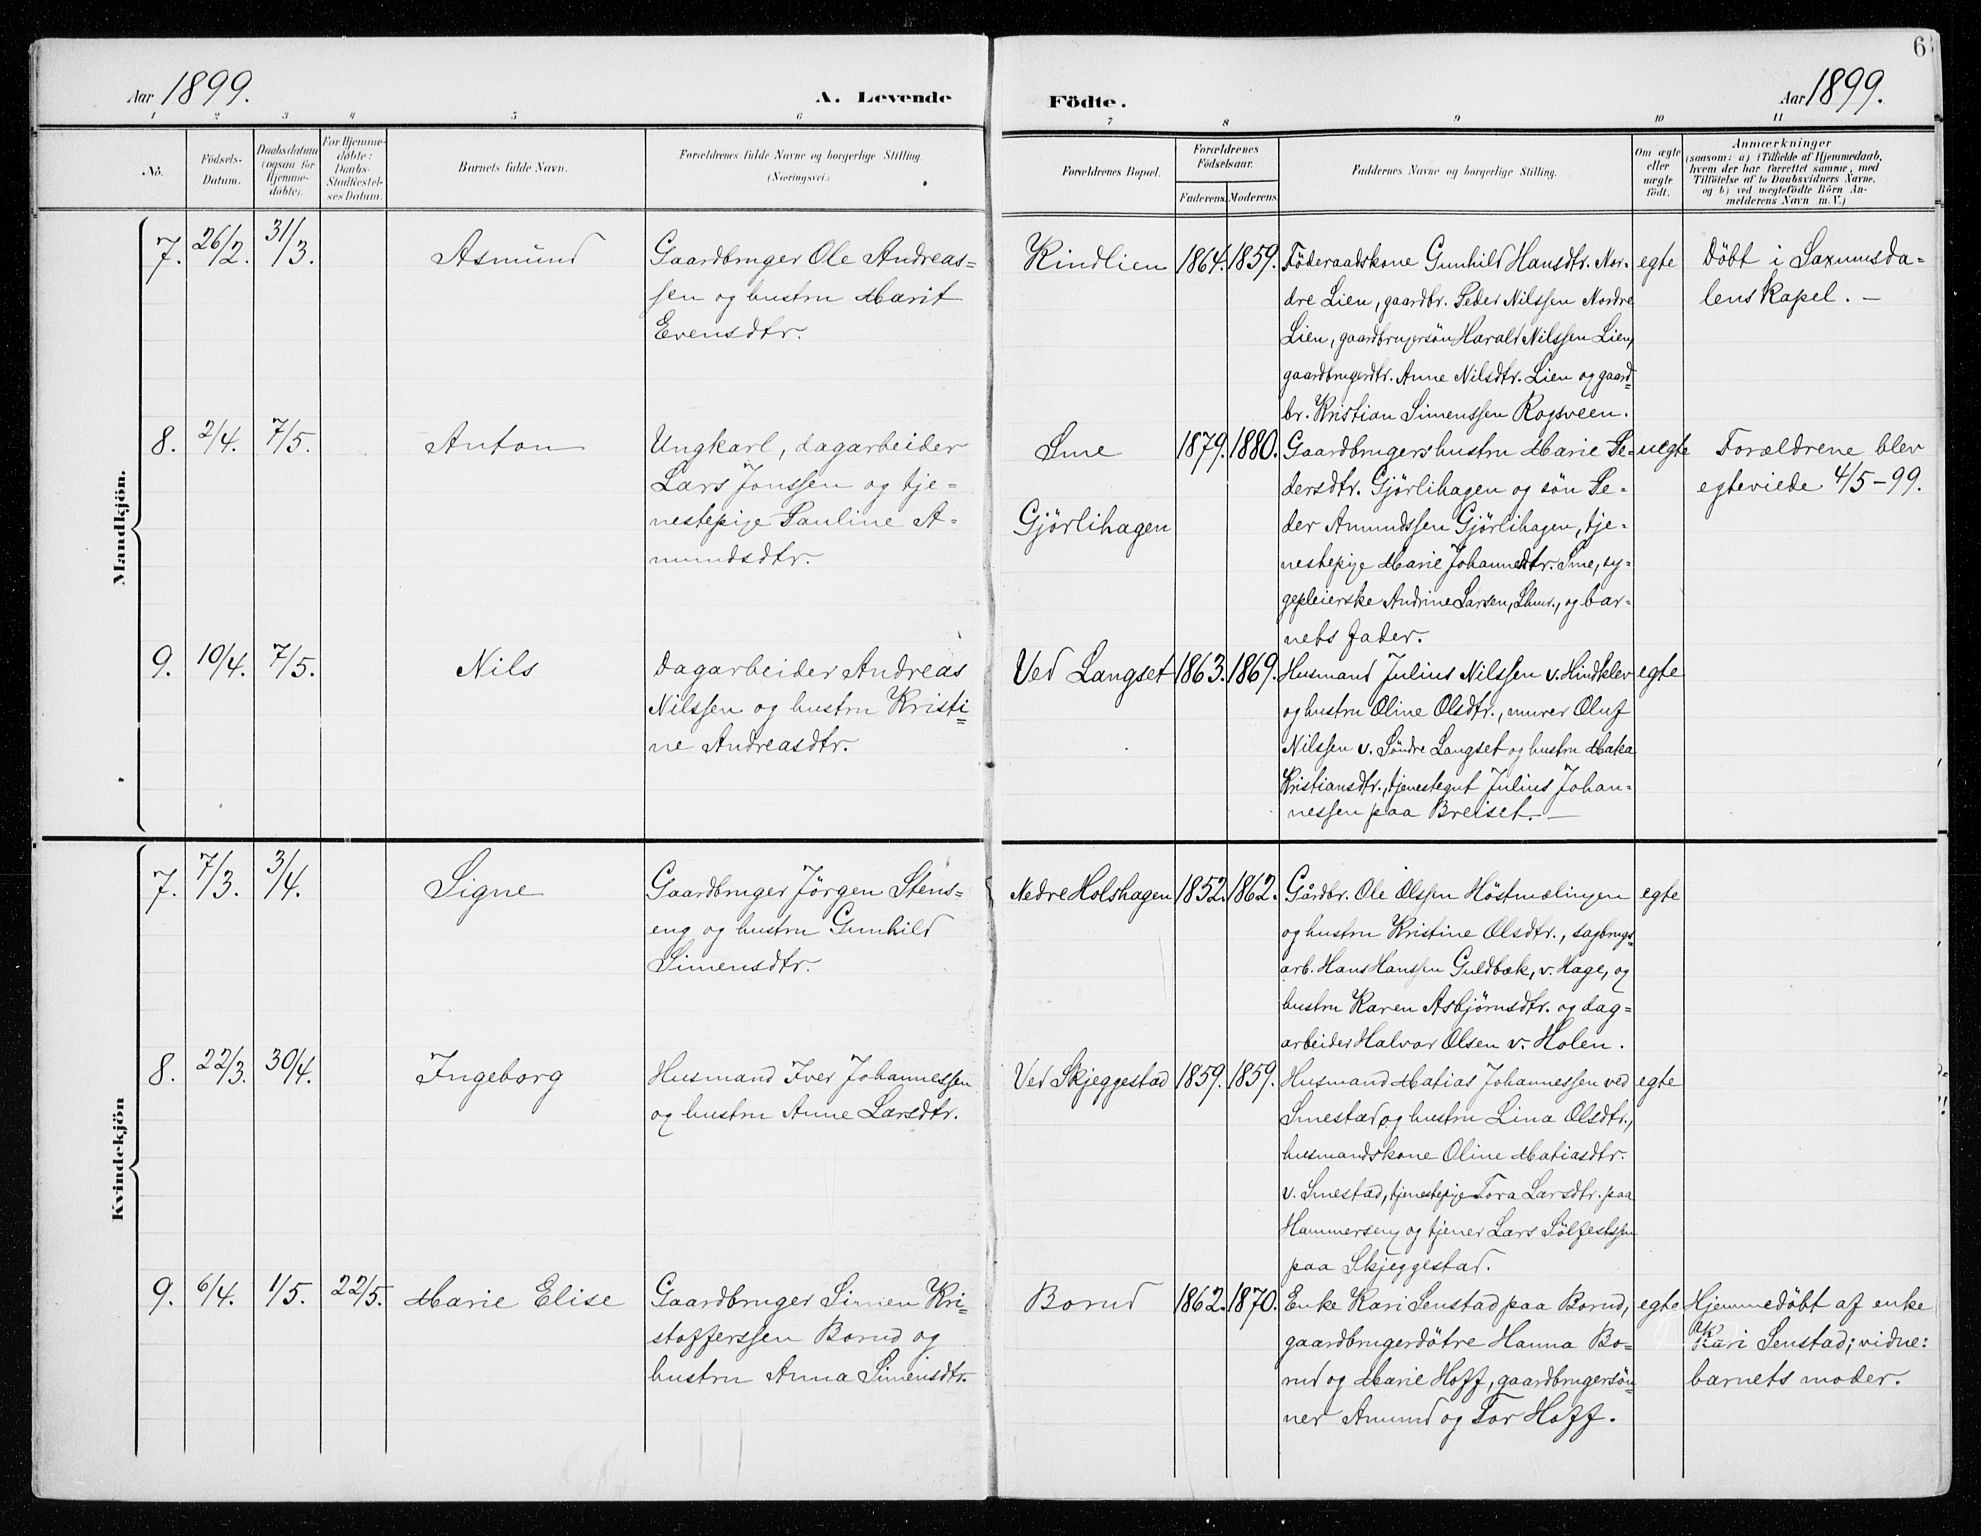 6
Aar 1899. A. Levende Födte. Aar 1899.
1 2 3 4 5 6 7 8 9 10 11
No.
Födsels-
Datum.
Daabsdatum
(ogsaa for
Hjemme-
döbte).
For Hjemme-
döbte:
Daabs-
Stadfæstel-
ses Datum.
Barnets fulde Navn.
Forældrenes fulde Navne og borgerlige Stilling.
(Næringsvei.)
Forældrenes Bopæl.
Forældrenes
Födselsaar.
Faderens. Moderens.
Faddernes Navne og borgerlige Stilling.
Om ægte
eller
uægte
födt.
Anmærkninger
(saasom: a) i Tilfælde af Hjemmedaab,
hvem der har forrettet samme, med
Tilföielse af to Daabsvidners Navne,
og b) ved uægtefödte Börn An-
melderens Navn m. V.)
Mandkjön.
7. 26/2. 31/3. Asmund
Gaardbruger Ole Andreas-
sen og hustru Marit
Evensdtr.
Rindlien 1864. 1859.
Föderaadskone Gunhild Hansdtr. Nor-
dre Lien, gaardbr. Peder Nilssen Nordre
Lien, gaardbrugersön Harald Nilssen Lien,
gaardbrugerdtr. Anne Nilsdtr. Lien og gaard-
br. Kristian Simenssen Rogsveen.
egte
Döbt i Saxumsda-
lens Kapel. —
8. 2/4. 7/5. Anton
Ungkarl, dagarbeider
Lars Jonssen og tje-
nestepige Pauline A-
mundsdtr.
Sme
Gjörlihagen
1879. 1880.
Gaardbrugers hustru Marie Pe-
dersdtr. Gjörlihagen og sön Pe-
der Amundssen Gjörlihagen, tje-
nestepige Marie Johannesdtr. Sme, sy-
gepleierske Andrine Larsen, Lhmr., og bar-
nets fader.
uegte
Forældrene blev
egteviede 4/5-99.
9. 10/4. 7/5. Nils
Dagarbeider Andreas
Nilssen og hustru Kristi-
ne Andreasdtr.
Ved Langset 1863. 1869.
Husmand Julius Nilssen v. Hindklev
og hustru Oline Olsdtr., murer Oluf
Nilssen v. Söndre Langset og hustru Maka
Kristiansdtr., tjenestegut Julius Johan-
nessen paa Breiset. —
egte
Kvindekjön
7. 7/3. 3/4. Signe
Gaardbruger Jörgen Stens-
eng og hustru Gunhild
Simensdtr.
Nedre Holshagen 1852. 1862.
Gårdbr. Ole Olssen Höstmælingen
og hustru Kristine Olsdtr., sagbrugs-
arb. Hans Hanssen Guldbæk, v. Hage, og
hustru Karen Asbjörnsdtr. og dag-
arbeider Halvor Olsen v. Holen.
egte
8. 22/3. 30/4. Ingeborg
Husmand Iver Johannessen
og hustru Anne Larsdtr.
Ved Skjeggestad 1859. 1859.
Husmand Matias Johannessen ved
Smestad og hustru Lina Olsdtr.,
husmandskone Oline Matiasdtr.
v. Smestad, tjenestepige Tora Larsdtr. paa
Hammerseng og tjener Lars Sölfestssen
paa Skjeggestad.
egte
9. 6/4. 1/5. 22/5. Marie Elise
Gaardbruger Simen Kri-
stofferssen Borud og
hustru Anna Simensdtr.
Borud 1862. 1870.
Enke Kari Senstad paa Borud,
gaardbrugerdötre Hanna Bo-
rud og Marie Hoff, gaardbrugersön-
ner Amund og Tor Hoff.
egte
Hjemmedöbt af enke
Kari Senstad; vidne:
barnets moder.